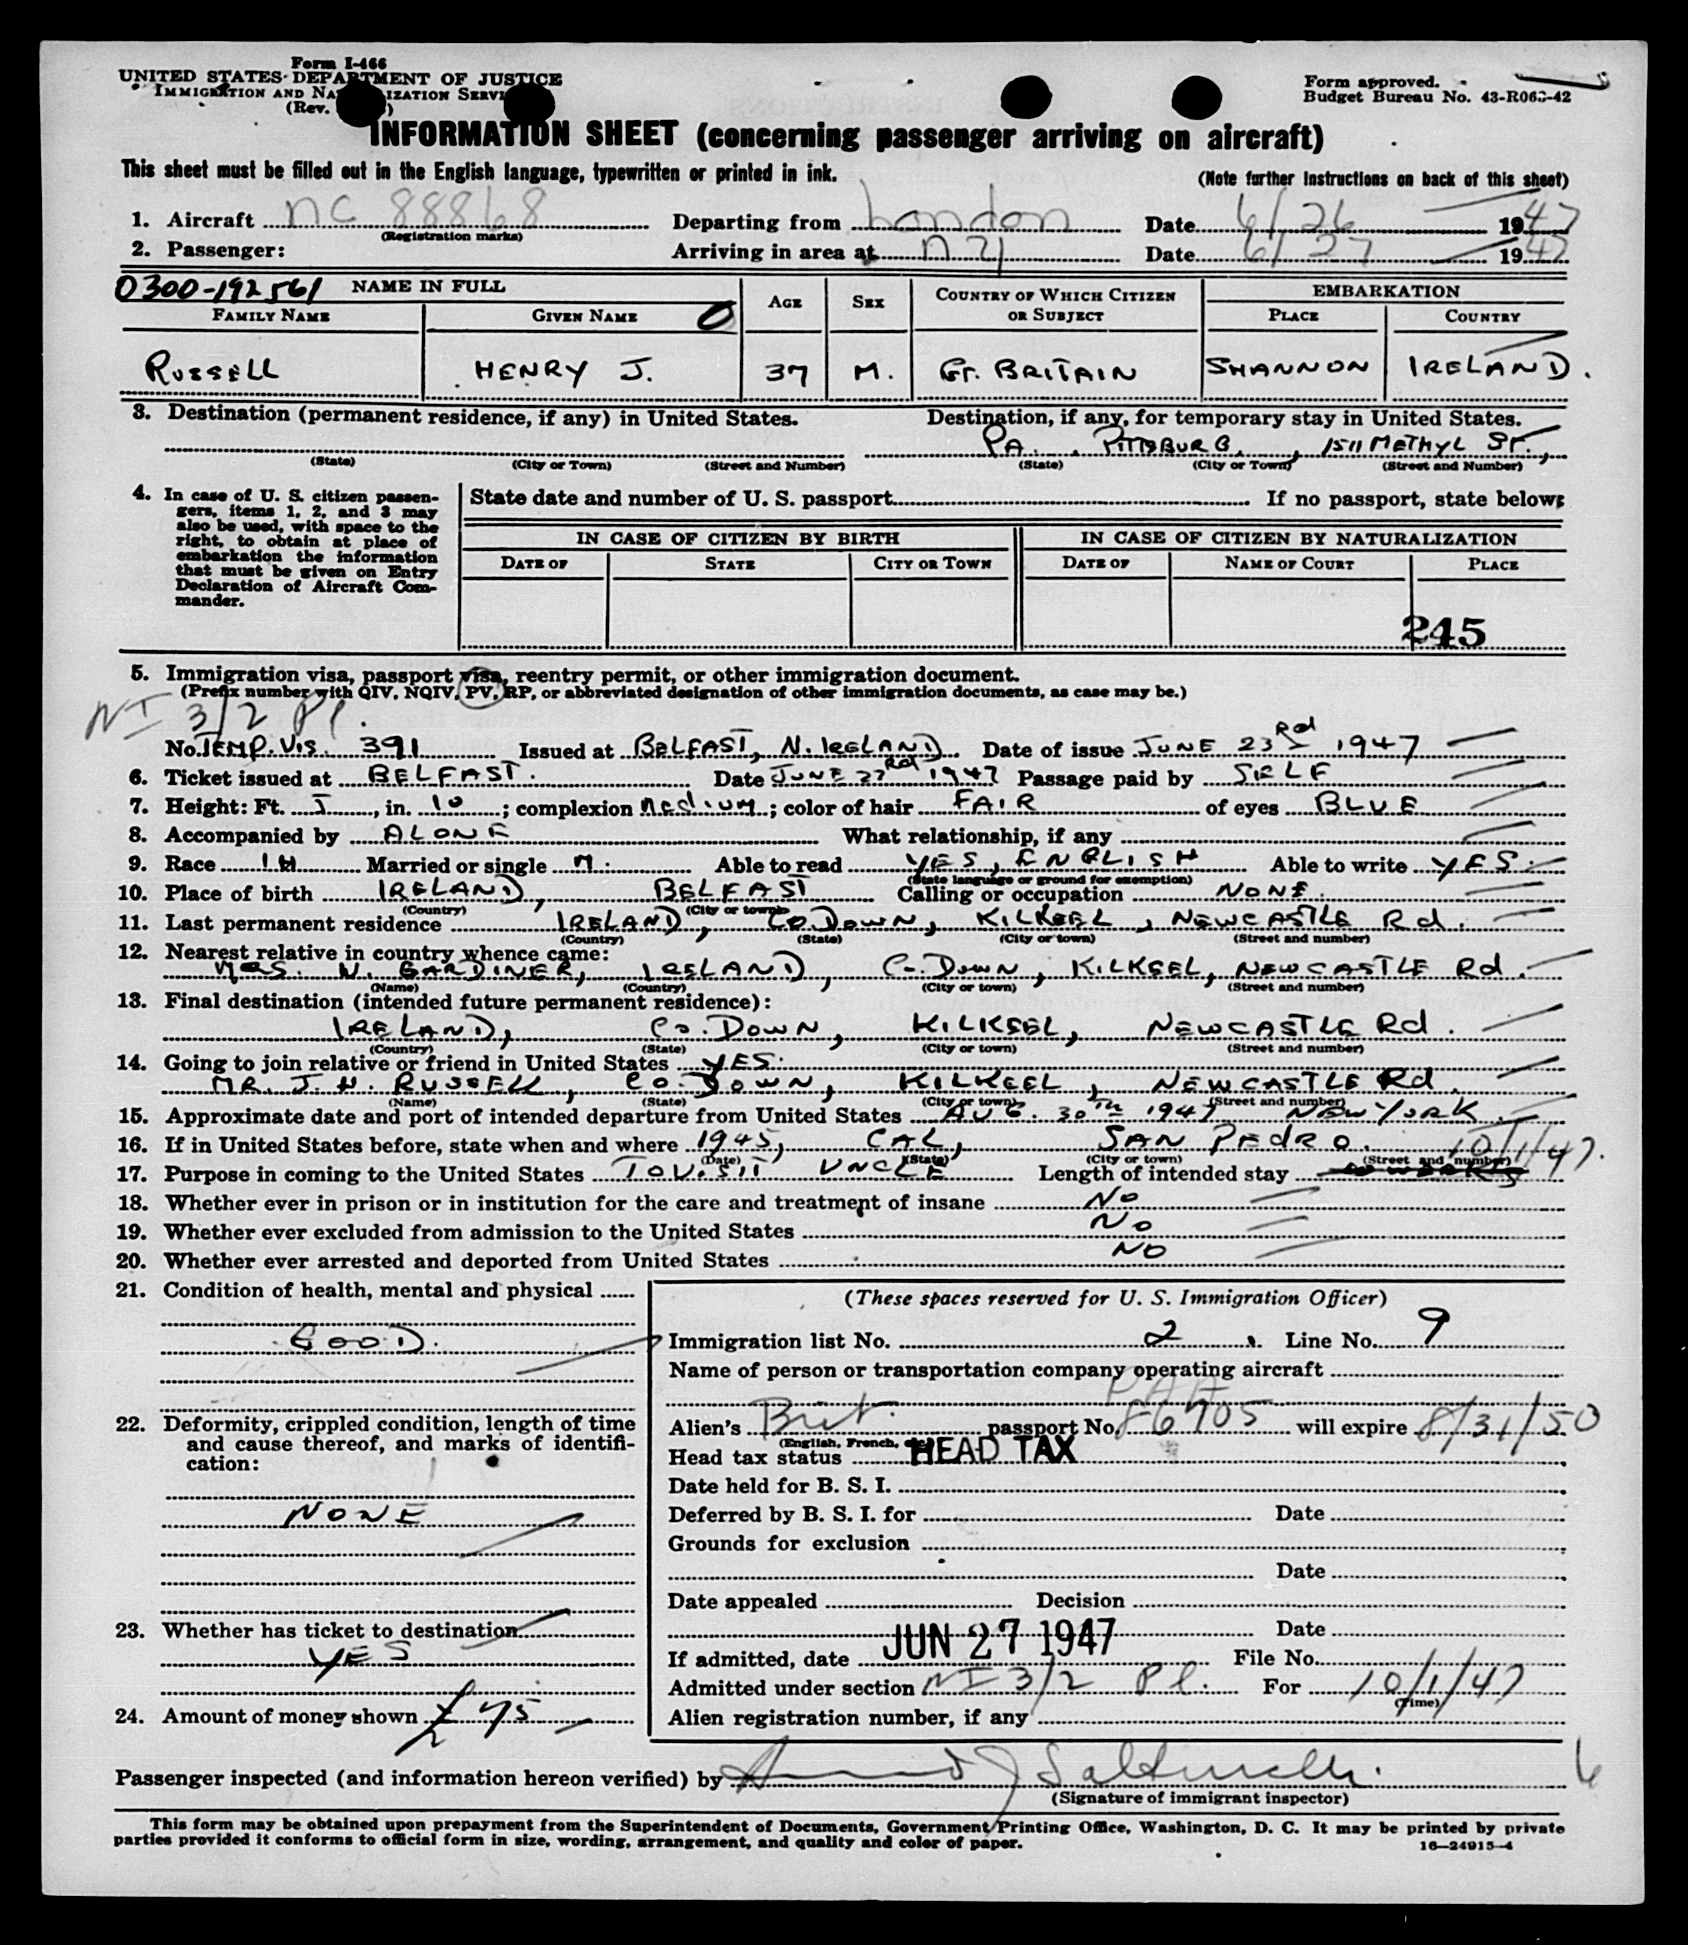 Form I-466
UNITED STATES DEPARTMENT OF JUSTICE
IMMIGRATION AND NATURALIZATION SERVICE
(Rev. )
Form approved.
Budget Bureau No. 43-R063-42
INFORMATION SHEET (concerning passenger arriving on aircraft)
This sheet must be filled out in the English language, typewritten or printed in ink.
(Note further instructions on back of this sheet)
1. Aircraft NC 88868 Departing from London Date 6/26 1947
(Registration marks)
2. Passenger: Arriving in area at NY Date 6/27 1947
0300-192561 NAME IN FULL AGE SEX COUNTRY OF WHICH CITIZEN OR SUBJECT EMBARKATION
FAMILY NAME GIVEN NAME O PLACE COUNTRY
RUSSELL HENRY J. 37 M. GT. BRITAIN SHANNON IRELAND.
3. Destination (permanent residence, if any) in United States. Destination, if any, for temporary stay in United States.
PA. PITTSBURG, 1511 METHYL ST.,
(State) (City or Town) (Street and Number) (State) (City or Town) (Street and Number)
4. In case of U. S. citizen passengers, items 1, 2, and 3 may also be used, with space to the right, to obtain at place of embarkation the information that must be given on Entry Declaration of Aircraft Commander.
State date and number of U. S. passport If no passport, state below:
IN CASE OF CITIZEN BY BIRTH IN CASE OF CITIZEN BY NATURALIZATION
DATE OF STATE CITY OR TOWN DATE OF NAME OF COURT PLACE
245
5. Immigration visa, passport visa, reentry permit, or other immigration document.
(Prefix number with QIV, NQIV, PV, RP, or abbreviated designation of other immigration documents, as case may be.)
NI 3/2 Pl.
No. TEMP. VIS. 391 Issued at BELFAST, N. IRELAND Date of issue JUNE 23Rd 1947
6. Ticket issued at BELFAST. Date JUNE 23Rd 1947 Passage paid by SELF
7. Height: Ft. 5, in. 10; complexion MEDIUM; color of hair FAIR of eyes BLUE
8. Accompanied by ALONE What relationship, if any
9. Race Married or single M. Able to read YES, ENGLISH Able to write YES.
(State language or ground for exemption)
10. Place of birth IRELAND, BELFAST Calling or occupation NONE.
(Country) (City or town)
11. Last permanent residence IRELAND, CO. DOWN, KILKEEL, NEWCASTLE Rd.
(Country) (State) (City or town) (Street and number)
12. Nearest relative in country whence came:
MRS. W. GARDINER, IRELAND, CO. DOWN, KILKEEL, NEWCASTLE Rd.
(Name) (Country) (City or town) (Street and number)
13. Final destination (intended future permanent residence):
IRELAND, CO. DOWN, KILKEEL, NEWCASTLE Rd.
(Country) (State) (City or town) (Street and number)
14. Going to join relative or friend in United States YES.
MR. J. H. RUSSELL, CO. DOWN, KILKEEL, NEWCASTLE Rd.
(Name) (State) (City or town) (Street and number)
15. Approximate date and port of intended departure from United States AUG. 30TH 1947 NEW YORK.
16. If in United States before, state when and where 1945, CAL, SAN PEDRO. 10/1/47.
(Date) (State) (City or town) (Street and number)
17. Purpose in coming to the United States TO VISIT UNCLE Length of intended stay
18. Whether ever in prison or in institution for the care and treatment of insane NO
19. Whether ever excluded from admission to the United States NO
20. Whether ever arrested and deported from United States NO
21. Condition of health, mental and physical
GOOD.
22. Deformity, crippled condition, length of time and cause thereof, and marks of identification:
NONE
23. Whether has ticket to destination
YES
24. Amount of money shown £75
(These spaces reserved for U. S. Immigration Officer)
Immigration list No. 2 Line No. 9
Name of person or transportation company operating aircraft
PAA
Alien's Brit. passport No. 86705 will expire 8/31/50
(English, French, etc.)
Head tax status HEAD TAX
Date held for B. S. I.
Deferred by B. S. I. for Date
Grounds for exclusion
Date
Date appealed Decision
Date
If admitted, date JUN 27 1947 File No.
Admitted under section NI 3/2 Pl. For 10/1/47
(Time)
Alien registration number, if any
Passenger inspected (and information hereon verified) by
(Signature of immigrant inspector)
This form may be obtained upon prepayment from the Superintendent of Documents, Government Printing Office, Washington, D. C. It may be printed by private
parties provided it conforms to official form in size, wording, arrangement, and quality and color of paper.
16—24915-4